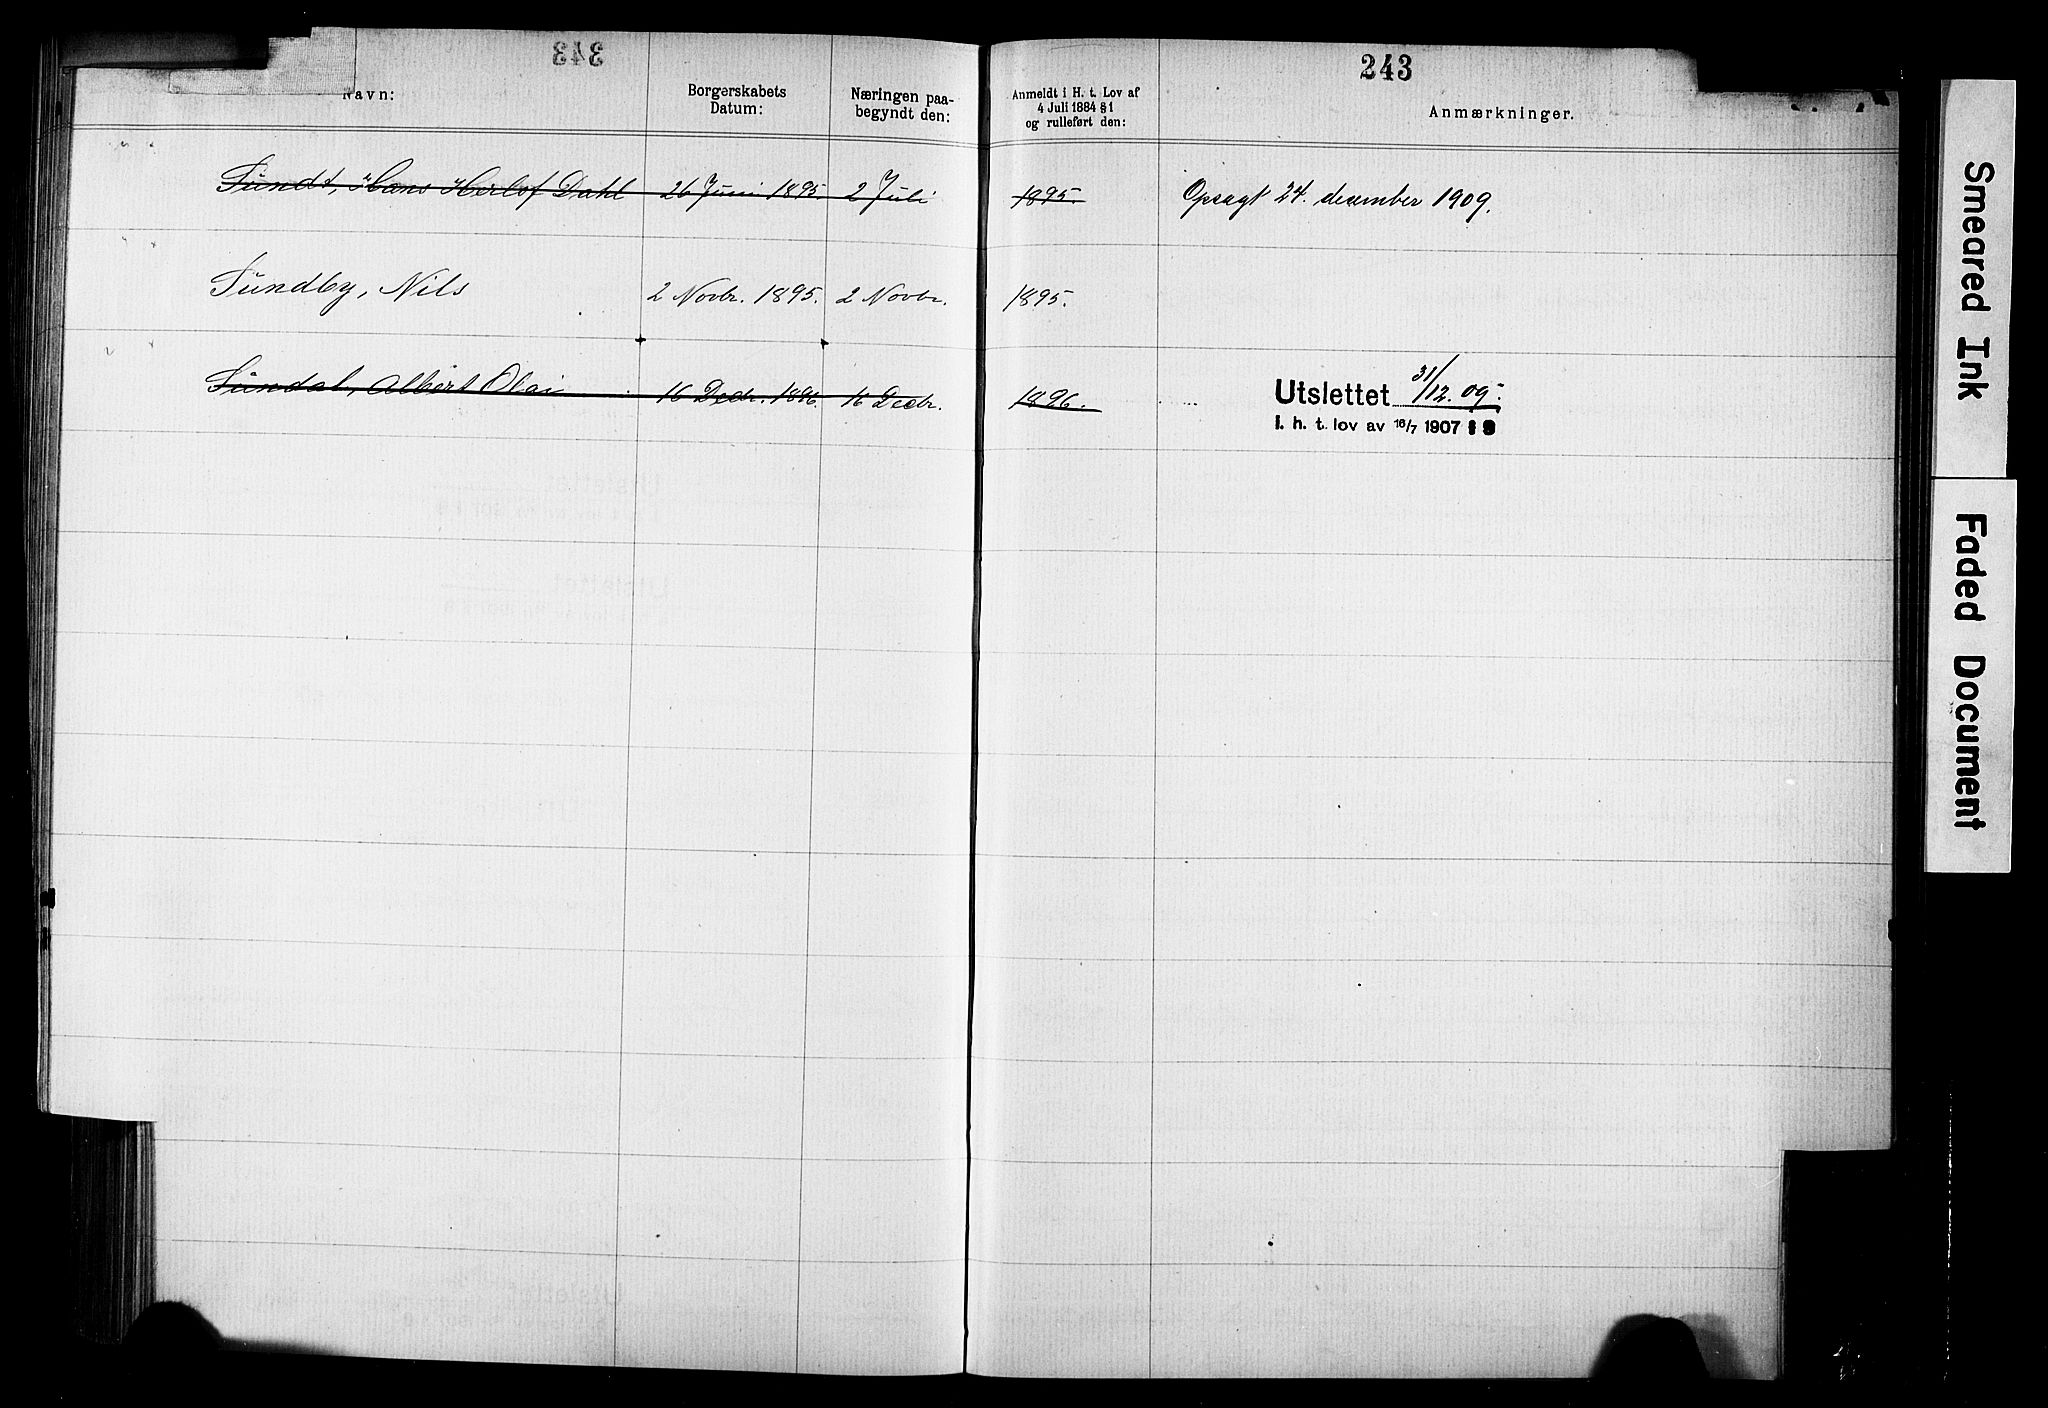 243
Navn:
Borgerskabets
Datum:
Næringen paa-
begyndt den:
Anmeldt i H. t. Lov af
4 Juli 1884 § 1
og rulleført den:
Anmærkninger.
Sundt, Hans Herlof Dahl 26 Juni 1895. 2 Juli 1895. Opsagt 24. desember 1909.
Sundby, Nils 2 Novbr. 1895. 2 Novbr. 1895.
Sundal, Albert Olai 16 Decbr. 1896. 16 Decbr. 1896. Utslettet 31/12.09.
I. h. t. lov av 16/7 1907
Smeared Ink
Faded Document